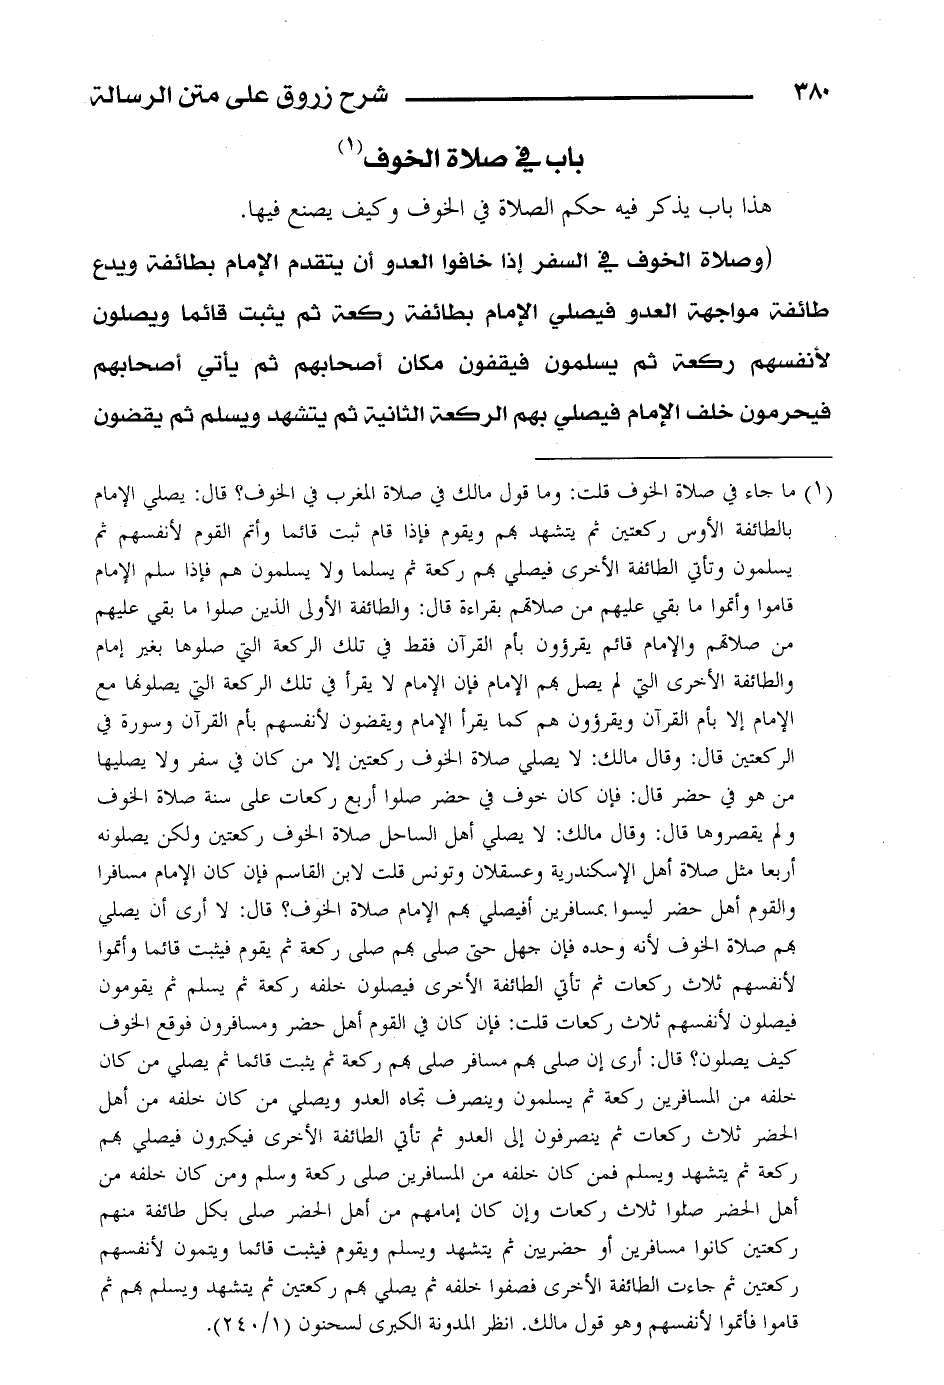 ٣٨٠ شرح زروق على متن الرسالة
باب في صلاة الخوف(١)
هذا باب يذكر فيه حكم الصلاة في الخوف وكيف يصنع فيها.
(وصلاة الخوف في السفر إذا خافوا العدو أن يتقدم الإمام بطائفة ويدع
طائفة مواجهة العدو فيصلي الإمام بطائفة ركعة ثم يثبت قائما ويصلون
لأنفسهم ركعة ثم يسلمون فيقفون مكان أصحابهم ثم يأتي أصحابهم
فيحرمون خلف الإمام فيصلي بهم الركعة الثانية ثم يتشهد ويسلم ثم يقضون
(١) ما جاء في صلاة الخوف قلت: وما قول مالك في صلاة المغرب في الخوف؟ قال: يصلي الإمام
بالطائفة الأوس ركعتين ثم يتشهد بهم ويقوم فإذا قام ثبت قائما وأتم القوم لأنفسهم ثم
يسلمون وتأتي الطائفة الأخرى فيصلي بهم ركعة ثم يسلما ولا يسلمون هم فإذا سلم الإمام
قاموا وأتموا ما بقي عليهم من صلاتهم بقراءة قال: والطائفة الأولى الذين صلوا ما بقي عليهم
من صلاتهم والإمام قائم يقرؤون بأم القرآن فقط في تلك الركعة التي صلوها بغير إمام
والطائفة الأخرى التي لم يصل بهم الإمام فإن الإمام لا يقرأ في تلك الركعة التي يصلونها مع
الإمام إلا بأم القرآن ويقرؤون هم كما يقرأ الإمام ويقضون لأنفسهم بأم القرآن وسورة في
الركعتين قال: وقال مالك: لا يصلي صلاة الخوف ركعتين إلا من كان في سفر ولا يصليها
من هو في حضر قال: فإن كان خوف في حضر صلوا أربع ركعات على سنة صلاة الخوف
ولم يقصروها قال: وقال مالك: لا يصلي أهل الساحل صلاة الخوف ركعتين ولكن يصلونه
أربعا مثل صلاة أهل الإسكندرية وعسقلان وتونس قلت لابن القاسم فإن كان الإمام مسافرا
والقوم أهل حضر ليسوا بمسافرين أفيصلي بهم الإمام صلاة الخوف؟ قال: لا أرى أن يصلي
بهم صلاة الخوف لأنه وحده فإن جهل حتى صلى بهم صلى ركعة ثم يقوم فيثبت قائما وأتموا
لأنفسهم ثلاث ركعات ثم تأتي الطائفة الأخرى فيصلون خلفه ركعة ثم يسلم ثم يقومون
فيصلون لأنفسهم ثلاث ركعات قلت: فإن كان في القوم أهل حضر ومسافرون فوقع الخوف
كيف يصلون؟ قال: أرى إن صلى بهم مسافر صلى بهم ركعة ثم يثبت قائما ثم يصلي من كان
خلفه من المسافرين ركعة ثم يسلمون وينصرف تجاه العدو ويصلي من كان خلفه من أهل
الحضر ثلاث ركعات ثم ينصرفون إلى العدو ثم تأتي الطائفة الأخرى فيكبرون فيصلي بهم
ركعة ثم يتشهد ويسلم فمن كان خلفه من المسافرين صلى ركعة وسلم ومن كان خلفه من
أهل الحضر صلوا ثلاث ركعات وإن كان إمامهم من أهل الحضر صلى بكل طائفة منهم
ركعتين كانوا مسافرين أو حضريين ثم يتشهد ويسلم ويقوم فيثبت قائما ويتمون لأنفسهم
ركعتين ثم جاءت الطائفة الأخرى فصفوا خلفه ثم يصلي بهم ركعتين ثم يتشهد ويسلم بهم ثم
قاموا فأتموا لأنفسهم وهو قول مالك. انظر المدونة الكبرى لسحنون (٢٤٠/١).